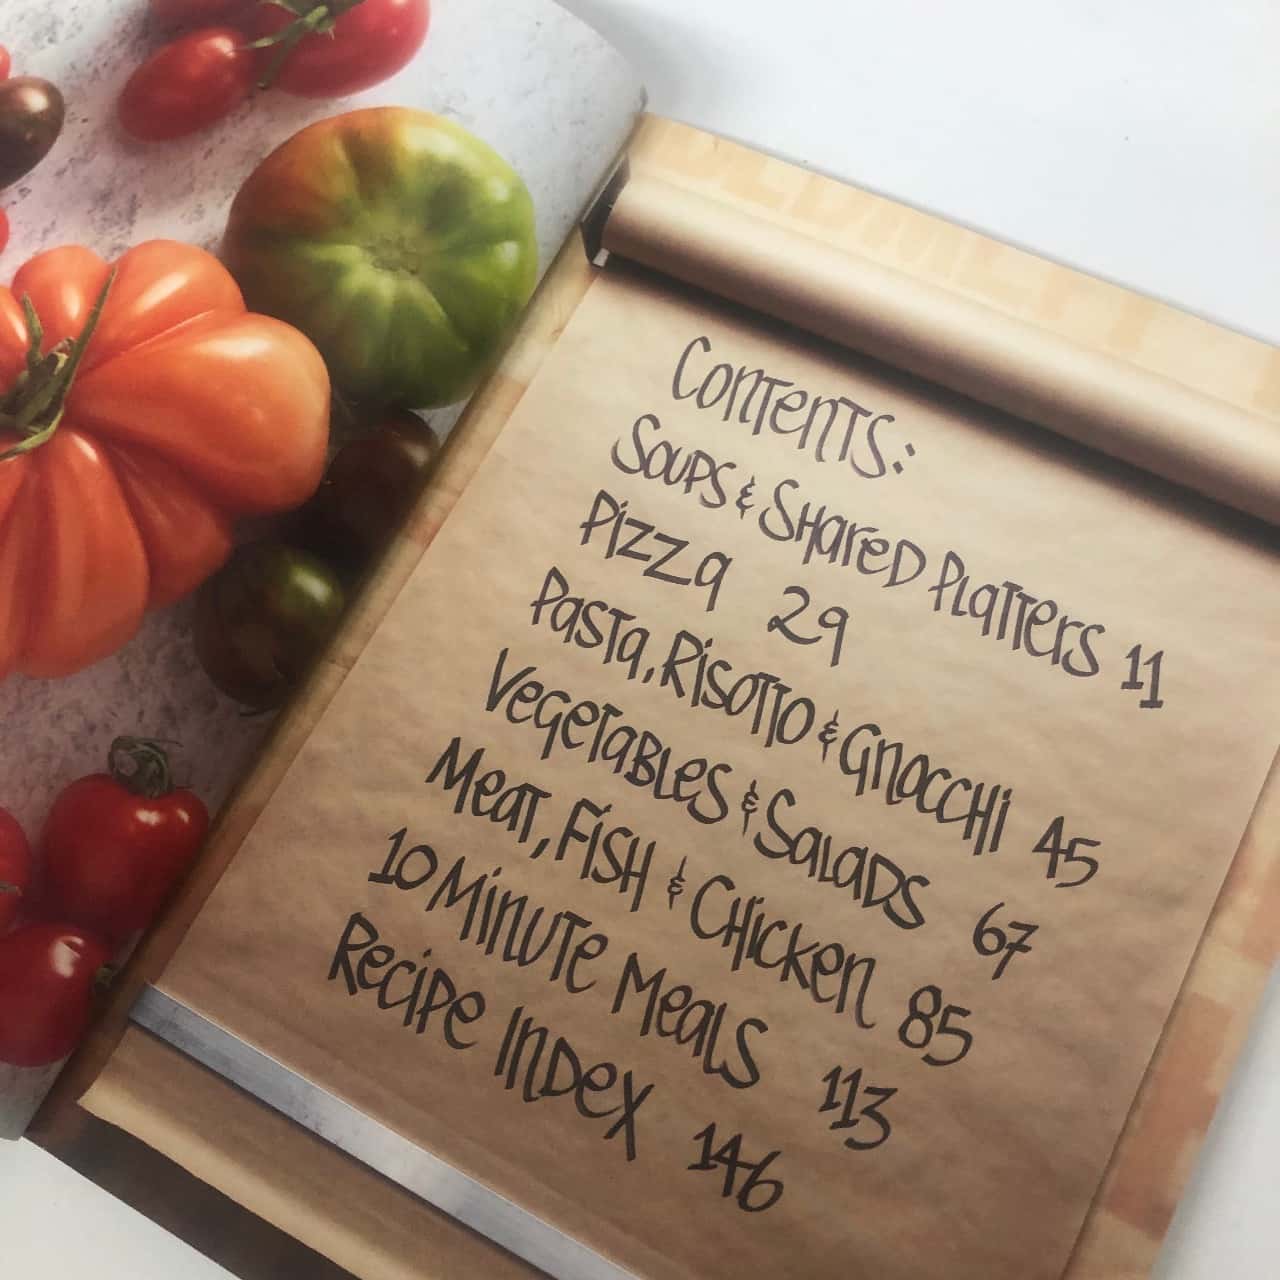 Contents:
Soups & Shared Platters 11
Pizza 29
Pasta, Risotto & Gnocchi 45
Vegetables & Salads 67
Meat, Fish & Chicken 85
10 Minute Meals 113
Recipe Index 146